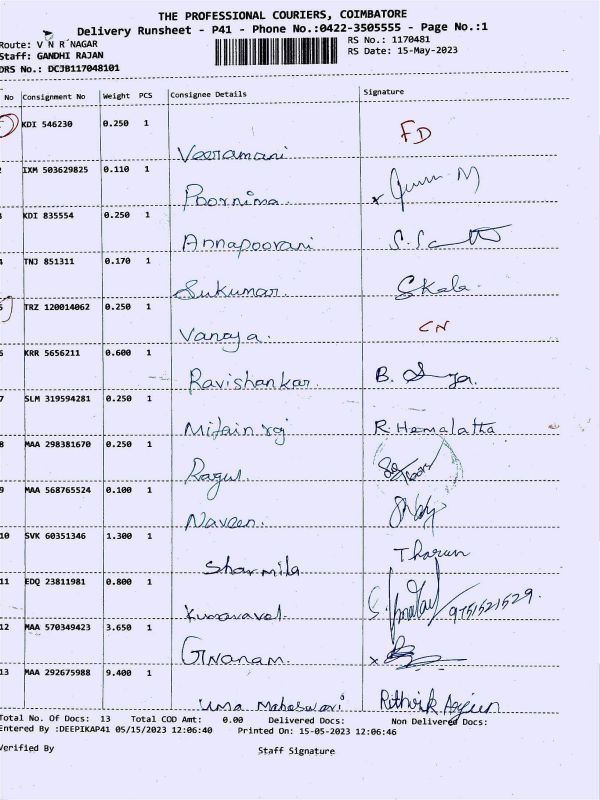 THE PROFESSIONAL COURIERS, COIMBATORE
Delivery Runsheet - P41 - Phone No.:0422-3505555 - Page No.:1
Route: V N R NAGAR RS No.: 1170481
Staff: GANDHI RAJAN RS Date: 15-May-2023
DRS No.: DCJB117048101
No Consignment No Weight PCS Consignee Details Signature
KDI 546230 0.250 1 FD
Veeramani
IXM 503629825 0.110 1
Poornima
3 KDI 835554 0.250 1
Annapoorani
4 TNJ 851311 0.170 1
Sukumar. Skala
5 TRZ 120014062 0.250 1 CN
Vanaja.
6 KRR 5656211 0.600 1
Ravishankar. B.
7 SLM 319594281 0.250 1
R. Hemalatha
8 MAA 298381670 0.250 1
Ragul.
9 MAA 568765524 0.100 1
Naveen.
10 SVK 60351346 1.300 1 Tharun
Sharmila
11 EDQ 23811981 0.800 1 9751521529.
Kumaravel.
12 MAA 570349423 3.650 1
Gnanam. x
13 MAA 292675988 9.400 1
Uma Maheswari Rithvik Arjun
Total No. Of Docs: 13 Total COD Amt: 0.00 Delivered Docs: Non Delivered Docs:
Entered By :DEEPIKAP41 05/15/2023 12:06:40 Printed On: 15-05-2023 12:06:46
Verified By Staff Signature